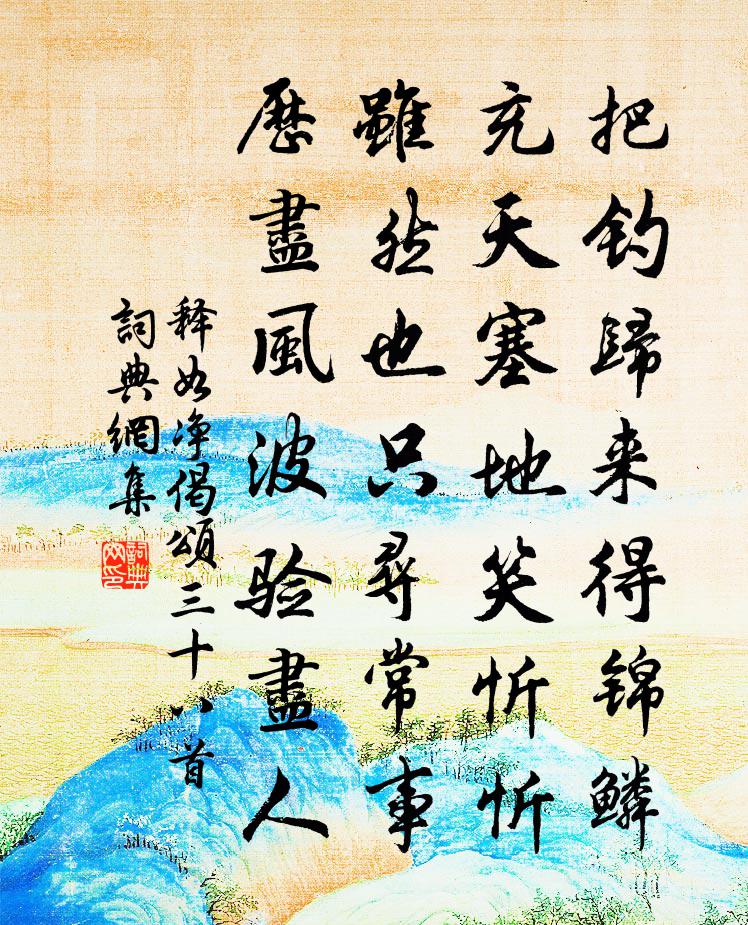 把钓歸来得锦鳞
充天塞地笑忻忻
雖然也只尋常事
歷盡風波验盡人
释如净偈頌三十八首
詞典網集
詞典
网印